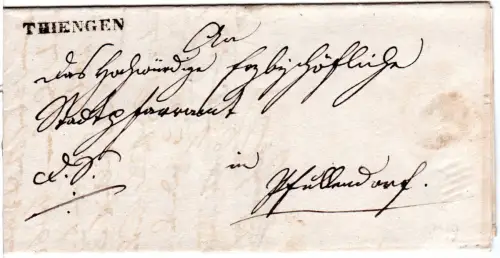 THIENGEN
An
das Hochwürdige Erzbischöfliche
Stadtpfarramt
d. S.
in
Pfullendorf.